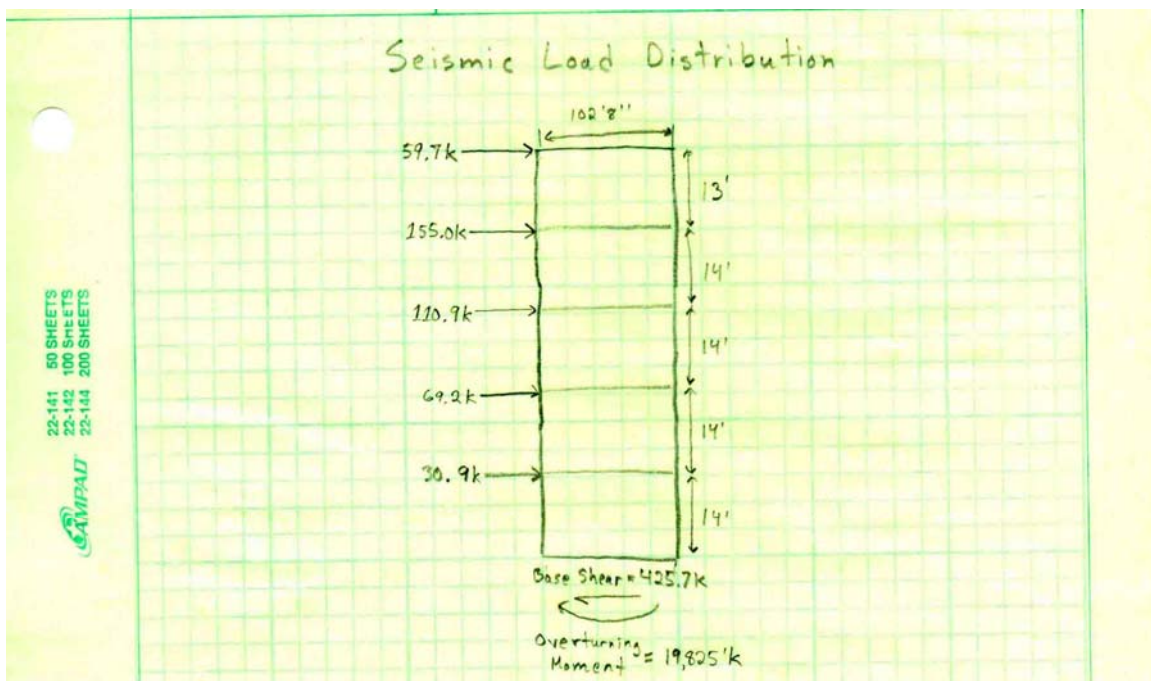 Seismic Load Distribution
102'8''
59.7k
13'
155.0k
14'
110.9k
14'
69.2k
14'
30.9k
14'
Base Shear = 425.7k
Overturning
Moment = 19,825'k
22-141 50 SHEETS
22-142 100 SHEETS
22-144 200 SHEETS
AMPAD